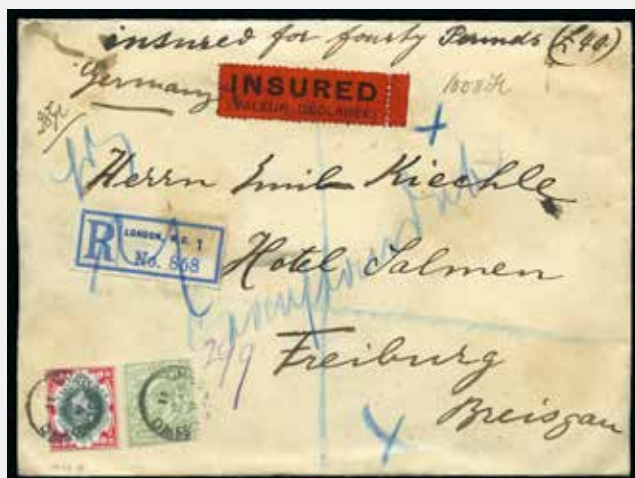 insured for fourty Pounds (£40)
Germany
INSURED
(VALEUR DÉCLARÉE)
1008
Herrn Emil Kiechle
R LONDON, W.C. 1
No. 868
Hotel Salmen
299
Freiburg
Breisgau